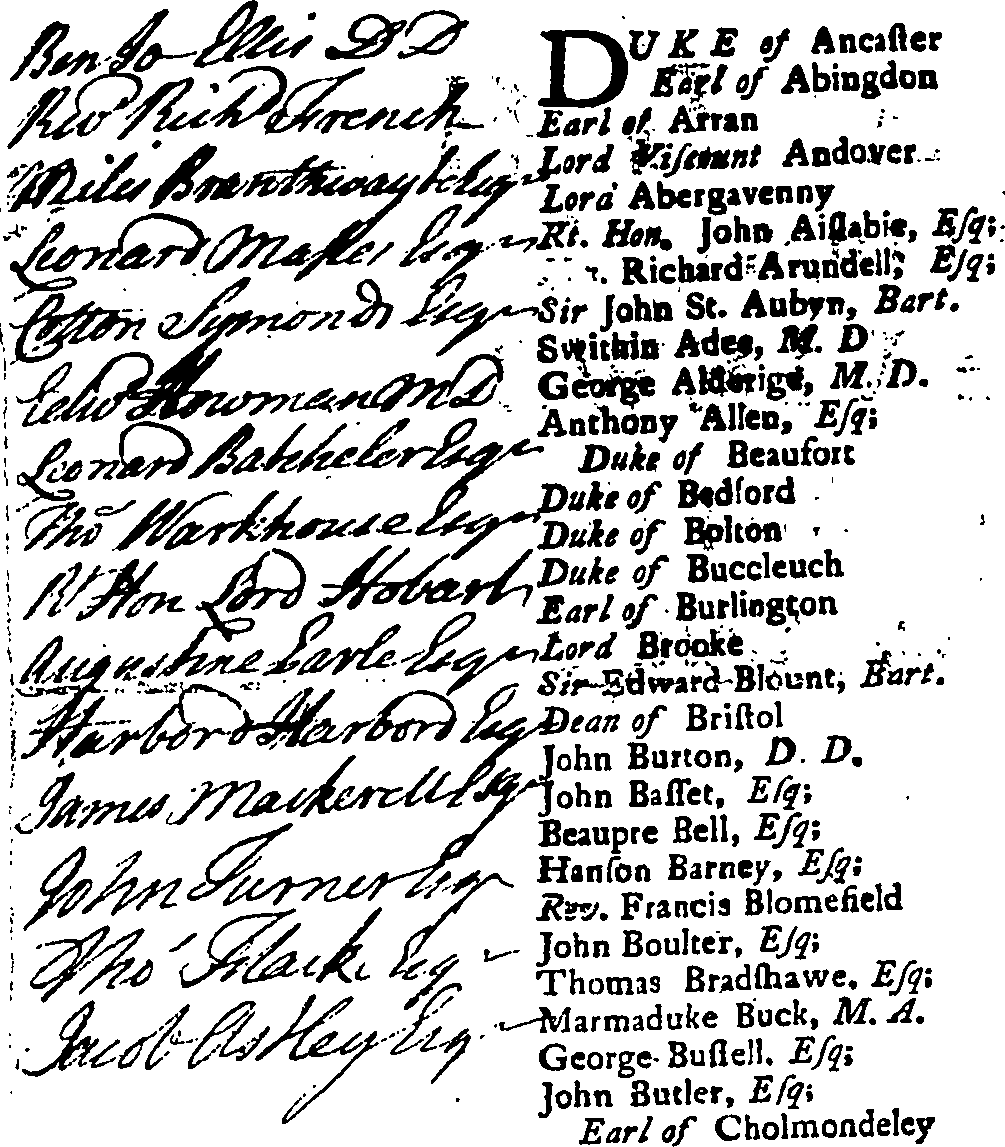 Ben Jo Ellis D D
Revd Richd French
Miles Branthwayt Esqr
Leonard Mapes Esqr
Cotton Symonds Esqr
Edwd Howman M D
Leonard Batcheler Esqr
Thos Warkhouse Esqr
Rt Hon Lord Hobart
Augustine Earle Esqr
Harbord Harbord Esqr
James Mackerell Esqr
John Turner Esqr
Thos Esqr
Jacob Astley Esqr
DUKE of Ancaſter
Earl of Abingdon
Earl of Arran
Lord Viſcount Andover
Lord Abergavenny
Rt. Hon. John Aiſlabie, Eſq;
Richard Arundell, Eſq;
Sir John St. Aubyn, Bart.
Swithin Adee, M. D
George Alderige, M. D.
Anthony Allen, Eſq;
Duke of Beaufort
Duke of Bedford
Duke of Bolton
Duke of Buccleuch
Earl of Burlington
Lord Brooke
Sir Edward Blount, Bart.
Dean of Briſtol
John Burton, D. D.
John Baſſet, Eſq;
Beaupre Bell, Eſq;
Hanſon Barney, Eſq;
Rev. Francis Blomefield
John Boulter, Eſq;
Thomas Bradſhawe, Eſq;
Marmaduke Buck, M. A.
George Buſſell, Eſq;
John Butler, Eſq;
Earl of Cholmondeley